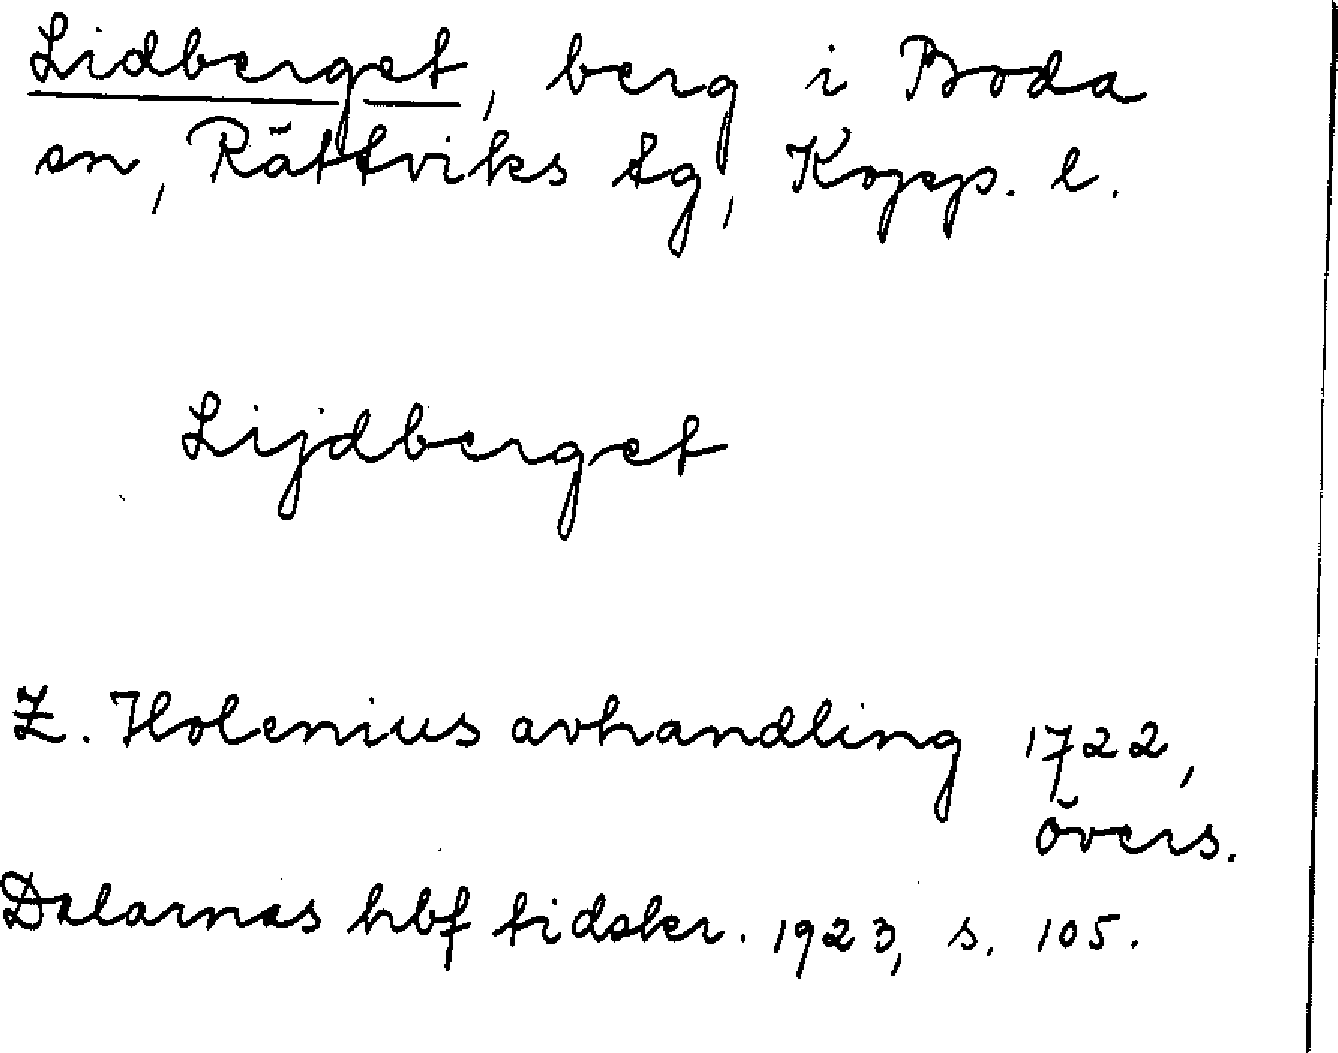 Lidberget, berg i Boda
sn, Rättviks tg, Kopp. l.
Lijdberget
Z. Holenius avhandling 1722,
övers.
Dalarnas hbf tidskr. 1923, s. 105.